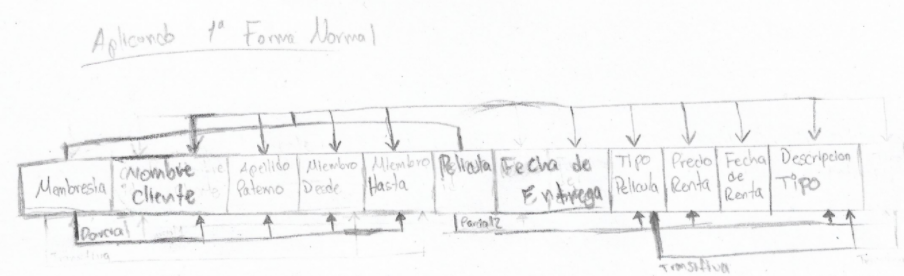 Aplicando 1ª Forma Normal
Membresia
Nombre
Cliente
Apellido
Paterno
Miembro
Desde
Miembro
Hasta
Pelicula
Fecha de
Entrega
Tipo
Pelicula
Precio
Renta
Fecha
de
Renta
Descripcion
Tipo
Parcial
Parcial2
Transitiva